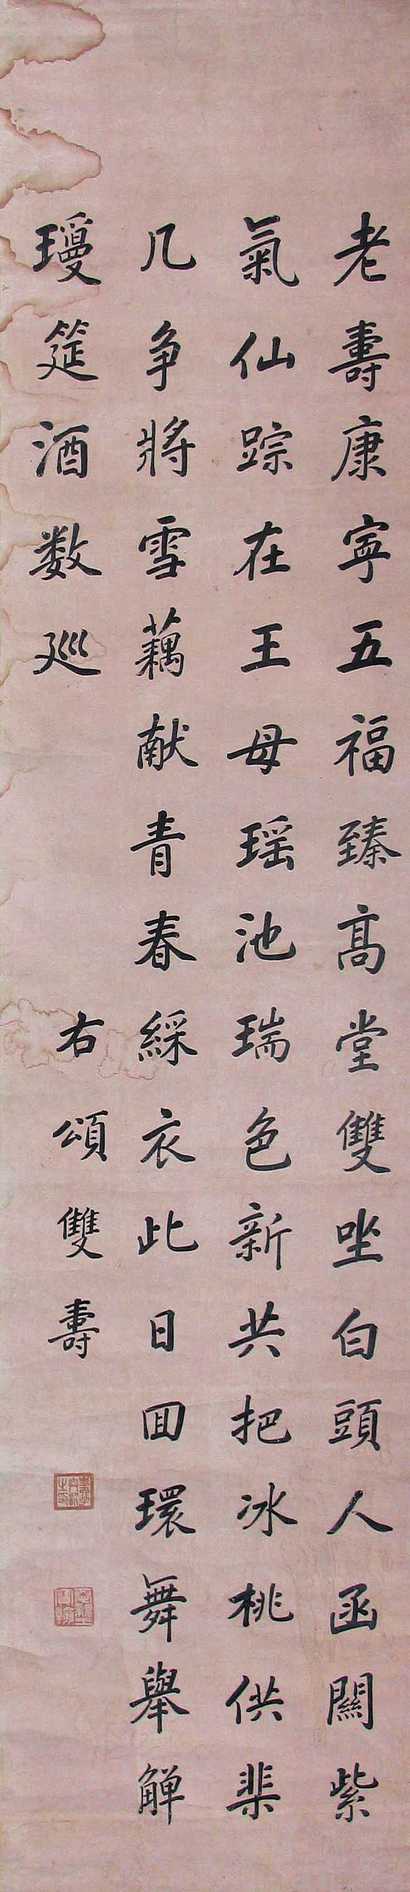 老壽康寧五福臻高堂雙坐白頭人函關紫
氣仙踪在王母瑶池瑞色新共把冰桃供棐
几争將雪藕献青春綵衣此日囬環舞舉觶
瓊筵酒数巡
右頌雙壽